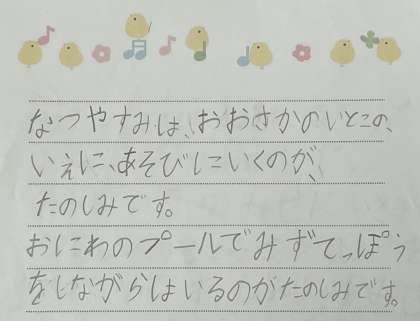 なつやすみは、おおさかのいとこの、
いえに、あそびにいくのが、
たのしみです。
おにわのプールでみずてっぽう
をしながらはいるのがたのしみです。